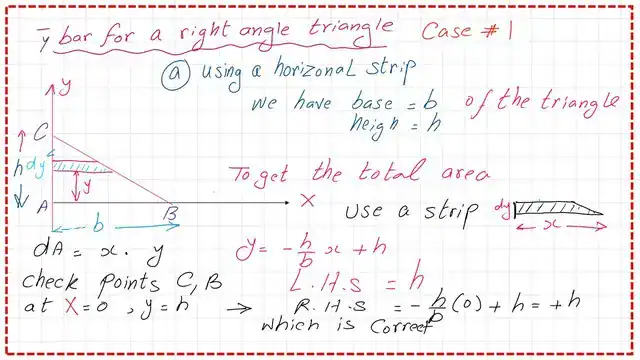 ȳ bar for a right angle triangle Case #1
ⓐ using a horizonal strip
we have base = b of the triangle
heigh = h
y
C
h dy
y
To get the total area
A
B
x
b
Use a strip dy
x
dA = x. y
y = -h/b x + h
check points C, B
L.H.S = h
at x=0, y=h → R.H.S = -h/b (0) + h = +h
which is correct